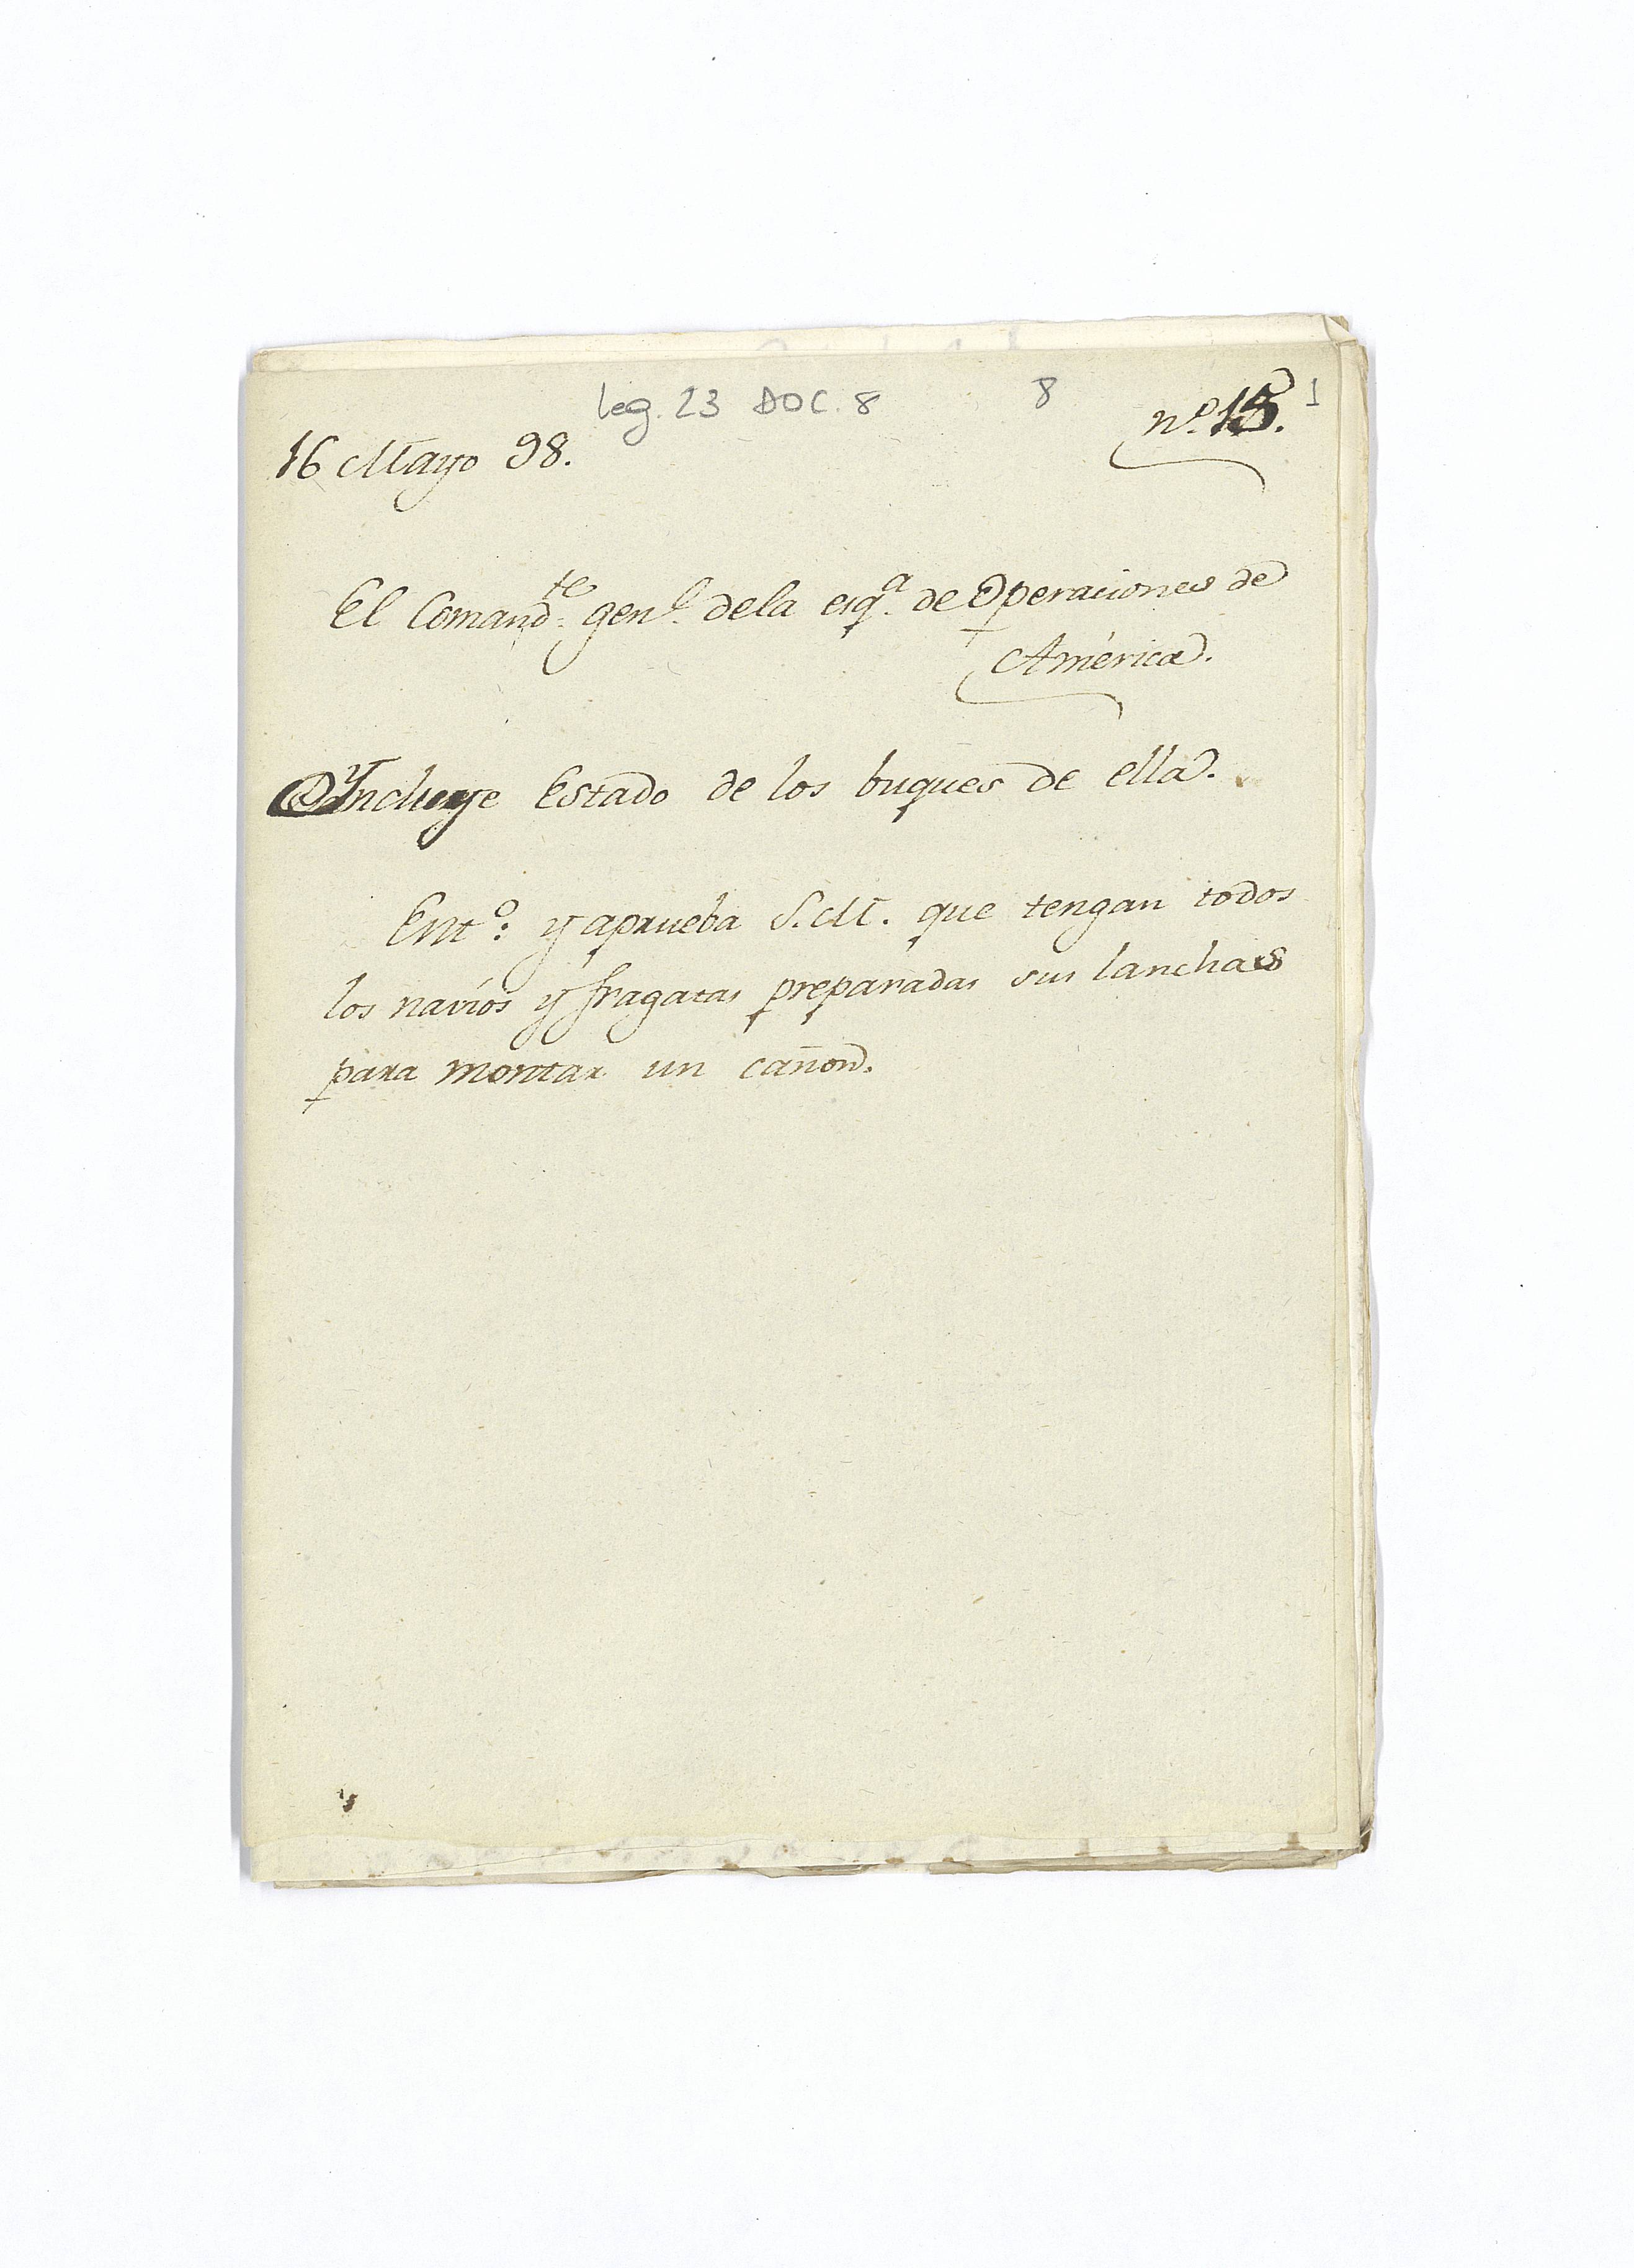 leg. 23 DOC. 8
8
1
nº 15.
16 Mayo 98.
El Comandte. genl. dela esqa. de Operaciones de
América.
Yncluye Estado de los buques de ella.
Entº: y aprueba S.M. que tengan todos
los navíos y fragatas preparadas sus lanchas
para montar un cañon.